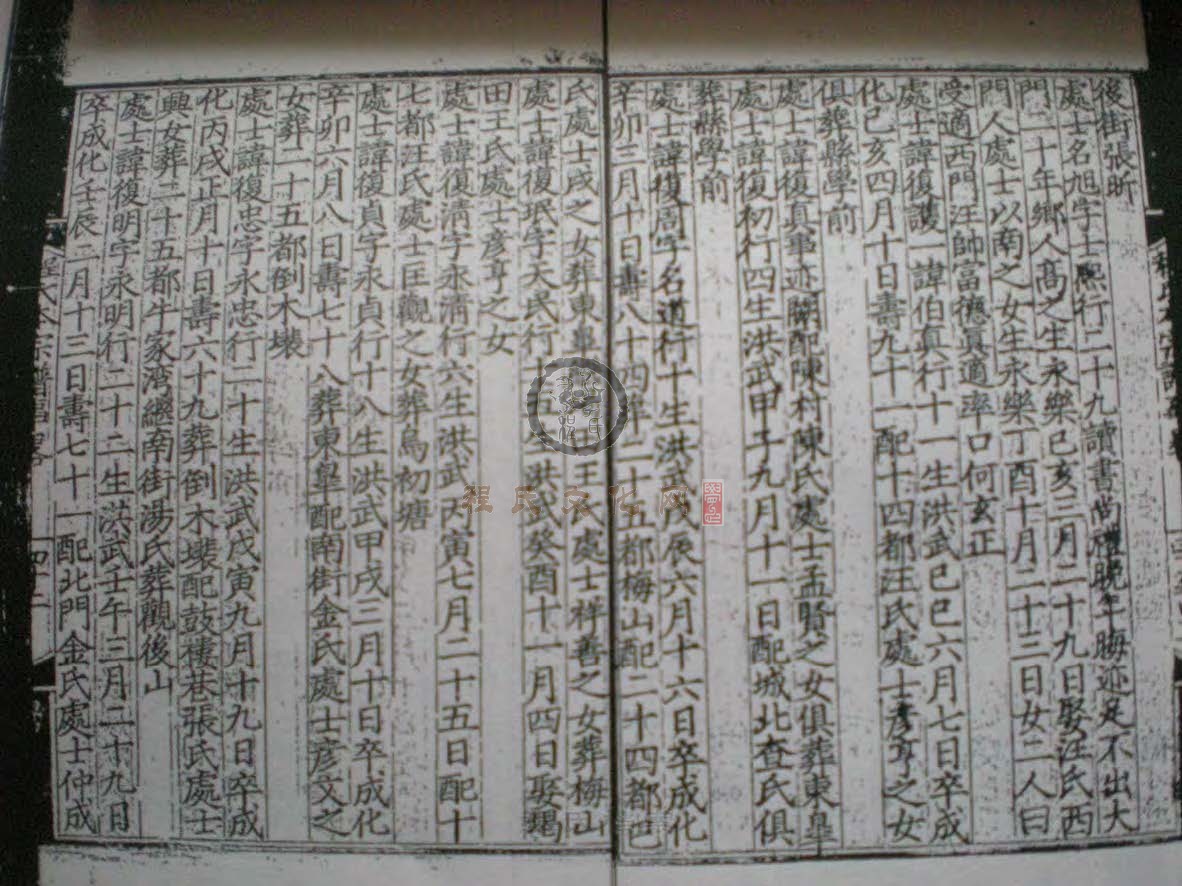 後街張昕
處士名旭字士熈行二十九讀書尚禮晚年晦迹足不出大
門二十年鄉人高之生永樂己亥二月二十九日娶汪氏西
門人處士以南之女生永樂丁酉十月二十三日女二人曰
受適西門汪帥富德真適率口何玄正
處士諱復護一諱伯真行十一生洪武己巳六月七日卒成
化己亥四月十日壽九十一配十四都汪氏處士彥亨之女
俱葬縣學前
處士諱復真事迹闕配陳村陳氏處士孟賢之女俱葬東臯
處士諱復初行四生洪武甲子九月十一日配城北查氏俱
葬縣學前
處士諱復周字名道行十生洪武戊辰六月十六日卒成化
辛卯三月十日壽八十四葬二十五都梅山配二十四都巴
氏處士戌之女葬東臯 王氏處士祥善之女葬梅山
處士諱復珉字天民行十 生洪武癸酉十一月四日娶瑒
田王氏處士彥亨之女
處士諱復清字永清行六生洪武丙寅七月二十五日配十
七都汪氏處士匡觀之女葬烏初塘
處士諱復貞字永貞行十八生洪武甲戌三月十日卒成化
辛卯六月八日壽七十八葬東臯配南街金氏處士彥文之
女葬二十五都倒木䃮
處士諱復忠字永忠行二十生洪武戊寅九月十九日卒成
化丙戌正月十日壽六十九葬倒木䃮配鼓樓巷張氏處士
興女葬二十五都牛家湾繼南街湯氏葬觀後山
處士諱復明字永明行二十二生洪武壬午三月二十九日
卒成化壬辰二月十三日壽七十一配北門金氏處士仲成
程氏文化网